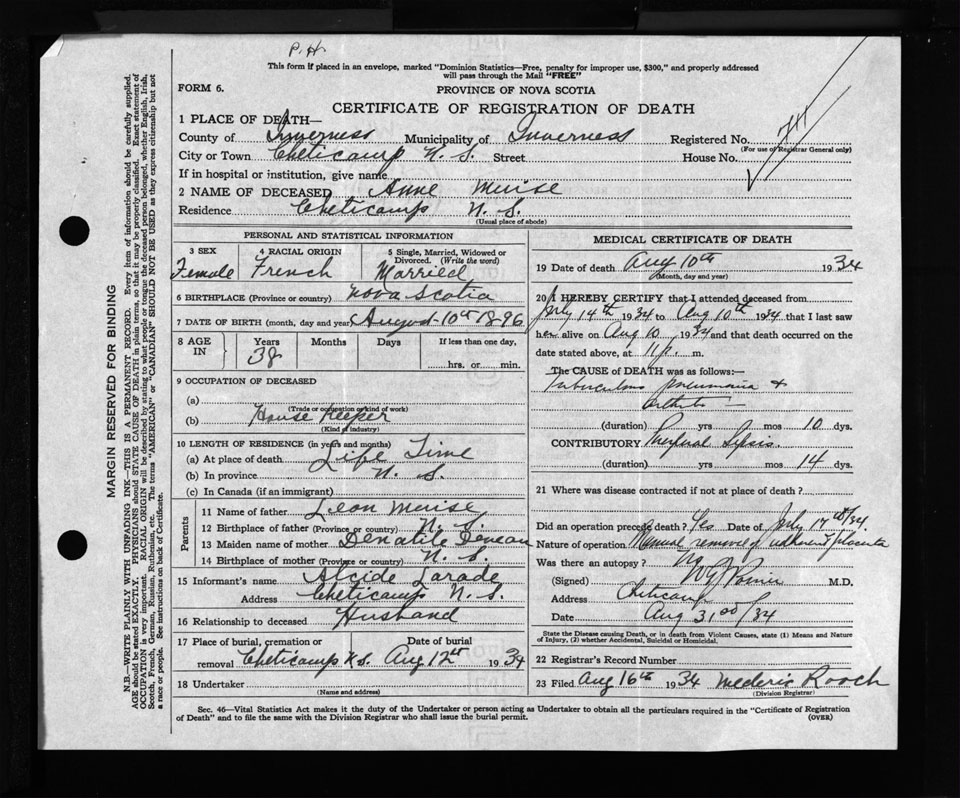 P.H.
This form if placed in an envelope, marked "Dominion Statistics—Free, penalty for improper use, $300," and properly addressed
will pass through the Mail "FREE"
FORM 6.
PROVINCE OF NOVA SCOTIA
CERTIFICATE OF REGISTRATION OF DEATH
1 PLACE OF DEATH—
County of Inverness Municipality of Inverness Registered No.
(For use of Registrar General only)
City or Town Cheticamp N. S. Street House No.
If in hospital or institution, give name
2 NAME OF DECEASED Anne Muise
Residence Cheticamp N. S.
(Usual place of abode)
PERSONAL AND STATISTICAL INFORMATION
3 SEX Female
4 RACIAL ORIGIN French
5 Single, Married, Widowed or Divorced. (Write the word) Married
6 BIRTHPLACE (Province or country) Nova Scotia
7 DATE OF BIRTH (month, day and year) August 10th 1896
8 AGE IN Years 38 Months Days If less than one day, hrs. or min.
9 OCCUPATION OF DECEASED
(a)
(Trade or occupation or kind of work)
(b) House Keeper
(Kind of industry)
10 LENGTH OF RESIDENCE (in years and months)
(a) At place of death Life Time
(b) In province N. S.
(c) In Canada (if an immigrant)
Parents
11 Name of father Leon Muise
12 Birthplace of father (Province or country) N. S.
13 Maiden name of mother
14 Birthplace of mother (Province or country) N. S.
15 Informant's name Alcide Larade
Address Cheticamp N. S.
16 Relationship to deceased Husband
17 Place of burial, cremation or removal Cheticamp N.S. Date of burial Aug 12th 1934
18 Undertaker
(Name and address)
MEDICAL CERTIFICATE OF DEATH
19 Date of death Aug 10th 1934
(Month, day and year)
20 I HEREBY CERTIFY that I attended deceased from
July 14th 1934 to Aug 10th 1934 that I last saw
her alive on Aug 10 1934 and that death occurred on the
date stated above, at 11 p. m.
The CAUSE of DEATH was as follows:—
Tuberculous pneumonia &
(duration) yrs mos 10 dys.
CONTRIBUTORY Puerperal Sepsis
(duration) yrs mos 14 dys.
21 Where was disease contracted if not at place of death?
Did an operation precede death? Yes Date of July 17th/34.
Nature of operation Manual removal of adherent placenta
Was there an autopsy? No
(Signed) M.D.
Address Cheticamp
Date Aug 31st/34
State the Disease causing Death, or in death from Violent Causes, state (1) Means and Nature
of Injury, (2) whether Accidental, Suicidal or Homicidal.
22 Registrar's Record Number
23 Filed Aug 16th 1934 Mederic Roach
(Division Registrar)
Sec. 46—Vital Statistics Act makes it the duty of the Undertaker or person acting as Undertaker to obtain all the particulars required in the "Certificate of Registration
of Death" and to file the same with the Division Registrar who shall issue the burial permit.
(OVER)
MARGIN RESERVED FOR BINDING
N.B.—WRITE PLAINLY WITH UNFADING INK—THIS IS A PERMANENT RECORD. Every item of information should be carefully supplied.
AGE should be stated EXACTLY. PHYSICIANS should STATE CAUSE OF DEATH in plain terms, so that it may be properly classified. Exact statement of
OCCUPATION is very important. RACIAL ORIGIN will be described by stating to what people or tongue the deceased person belonged, whether English, Irish,
Scotch, French, German, Russian, Ruthenian, etc. The terms "AMERICAN" or "CANADIAN" SHOULD NOT BE USED as they express citizenship but not
a race or people. See instructions on back of Certificate.